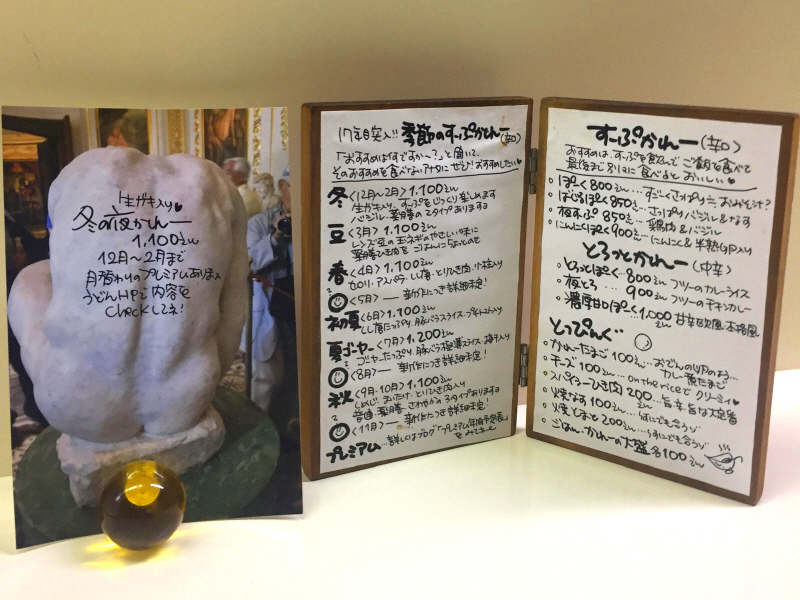 生ガキ入り♥
冬の夜かれー
1,100えん
12月〜2月まで
月替わりのプレミアムありまス
うどんHPで内容を
checkしてネ!
17年目突入!! 季節のすーぷかれー(辛口)
「おすすめは何ですか〜?」と聞いて、
そのおすすめを食べないアナタにぜひ!おすすめしたい♥
冬〈12月〜2月〉1,100えん
生ガキ入り。すーぷをじっくり楽しめます
バジル、薬膳の2タイプあります
豆〈3月〉1,100えん
レンズ豆の玉ネギのやさしい味に
薬膳ひき肉を
春〈4月〉1,100えん
カブリ、アスパラ、しし唐、とりひき肉、小柱入り
〈5月〉— 新作につき詳細未定!
初夏〈6月〉1,100えん
しし唐たっぷり、豚バラスライス、プチトマト入り
夏ゴーヤー〈7月〉1,200えん
ゴーヤーたっぷり、豚バラ極薄スライス、梅干入り
〈8月〉— 新作につき詳細未定!
秋〈9月・10月〉1,100えん
しめじ、まいたけ、とりひき肉入り
普通・薬膳・さわやかの3タイプあります
〈11月〉— 新作につき詳細未定!
プレミアム…詳しくはブログ「プレミアム年間予定表」
をみてネ
すーぷかれー(辛口)
おすすめは、すーぷを飲んでご飯を食べて
最後まで別々に食べるとおいしい♥
・ぽーく 800えん…すごーくさっぱり=おみそ汁?
・ばじるぽーく 850えん…さっぱりバジル&なす
・夜のすーぷ 850えん…鶏肉&バジル
・にんにくぽーく 900えん…にんにく&半熟UP入り
とろっとかれー(中辛)
・とろっとぽーく…800えん フツーのカレーライス
・夜とろ…900えん フツーのチキンカレー
・濃厚甘口ぽーく…1,000えん 甘辛欧風・本格風
とっぴんぐ
・かれーたまご 100えん…おでんのUPのよう…カレー煮たまご
・チーズ 100えん…on the riceでクリーミィ♥
・スパイシーひき肉 200えん…旨辛、旨な大定番
・焼なす 100えん…何にでも合うゾ
・焼とまと 200えん…何にでも合うゾ
・ごはん・かれーの大盛 各100えん